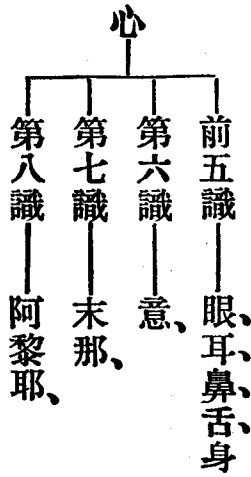 心
前五識 眼、耳、鼻、舌、身
第六識 意、
第七識 末那、
第八識 阿黎耶、